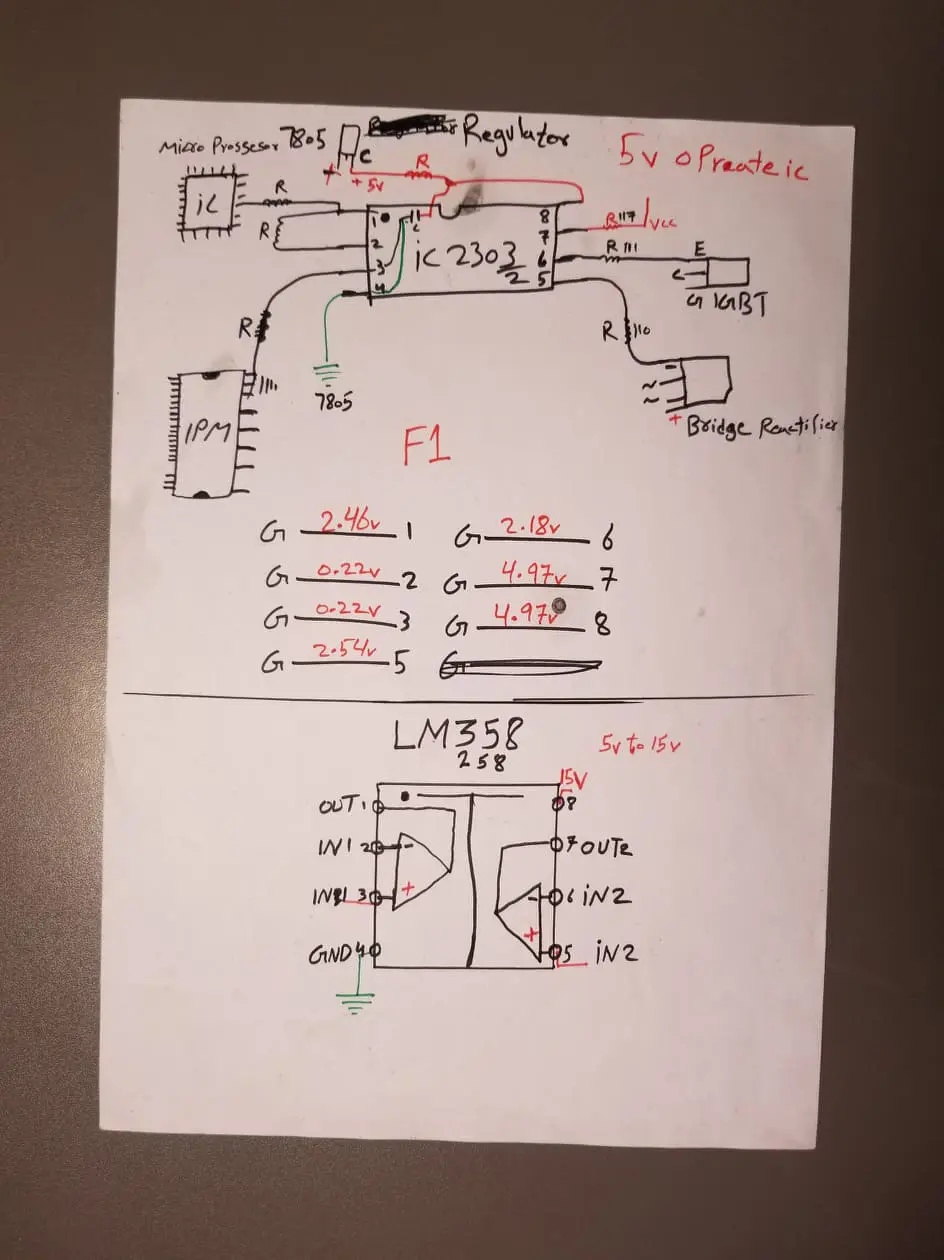 Micro Prossesor 7805 Regulator
5v oPraate ic
iC
R
C
+ 5v
R
R
1
2
3
4
C
iC 2303
2
8
7
6
5
R 117
Vcc
R 111
E
C
G IGBT
R 110
-
~
~
+ Bridge Rectifier
R
1111
IPM
7805
F1
G 2.46v 1
G 2.18v 6
G 0.22v 2
G 4.97v 7
G 0.22v 3
G 4.97v 8
G 2.54v 5
LM358
258
5v to 15v
15V
OUT 1
8
IN1 2 -
7 OUT2
IN1 3 +
- 6 iN2
GND 4
+ 5 iN2